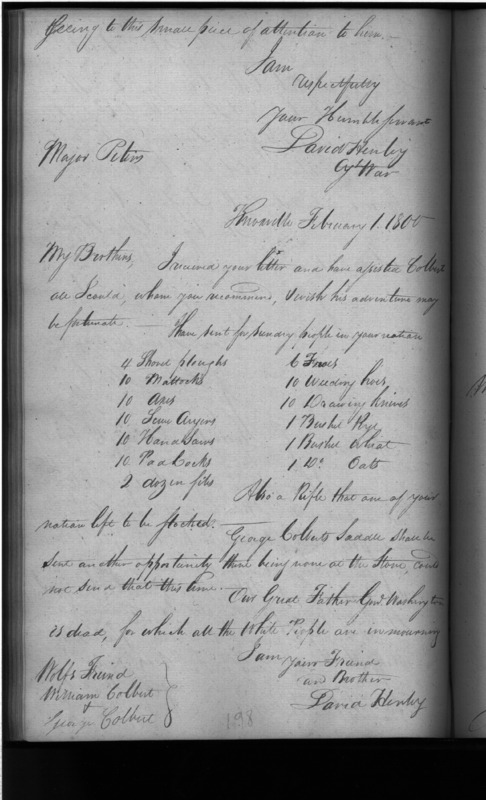 seeing to this small piece of attention to him.—
I am
respectfully
Your Humble Servant
David Henley
Agt War
Major Peters
Knoxville February 1. 1800
My Brothers, I received your letter and have assisted Colbert
all I could, whom you recommend, I wish his adventure may
be fortunate. — I have sent for sundry people in your nation
4 Shovel ploughs 6 Froes
10 Mattocks 10 Weeding hoes
10 Axes 10 Drawing knives
10 Screw Augers 1 Bushel Rye
10 Hand Saws 1 Bushel Wheat
10 Pad Locks 1 Do Oats
2 dozen files
Also a Rifle that one of your
nation left to be stocked. —
George Colberts Saddle shall be
sent another opportunity there being none at the Store, could
not send that this time. —
Our Great Father Genl Washington
is dead, for which all the White People are in mourning
I am your Friend
and Brother
David Henley
Wolf's Friend
William Colbert
&
George Colbert
198